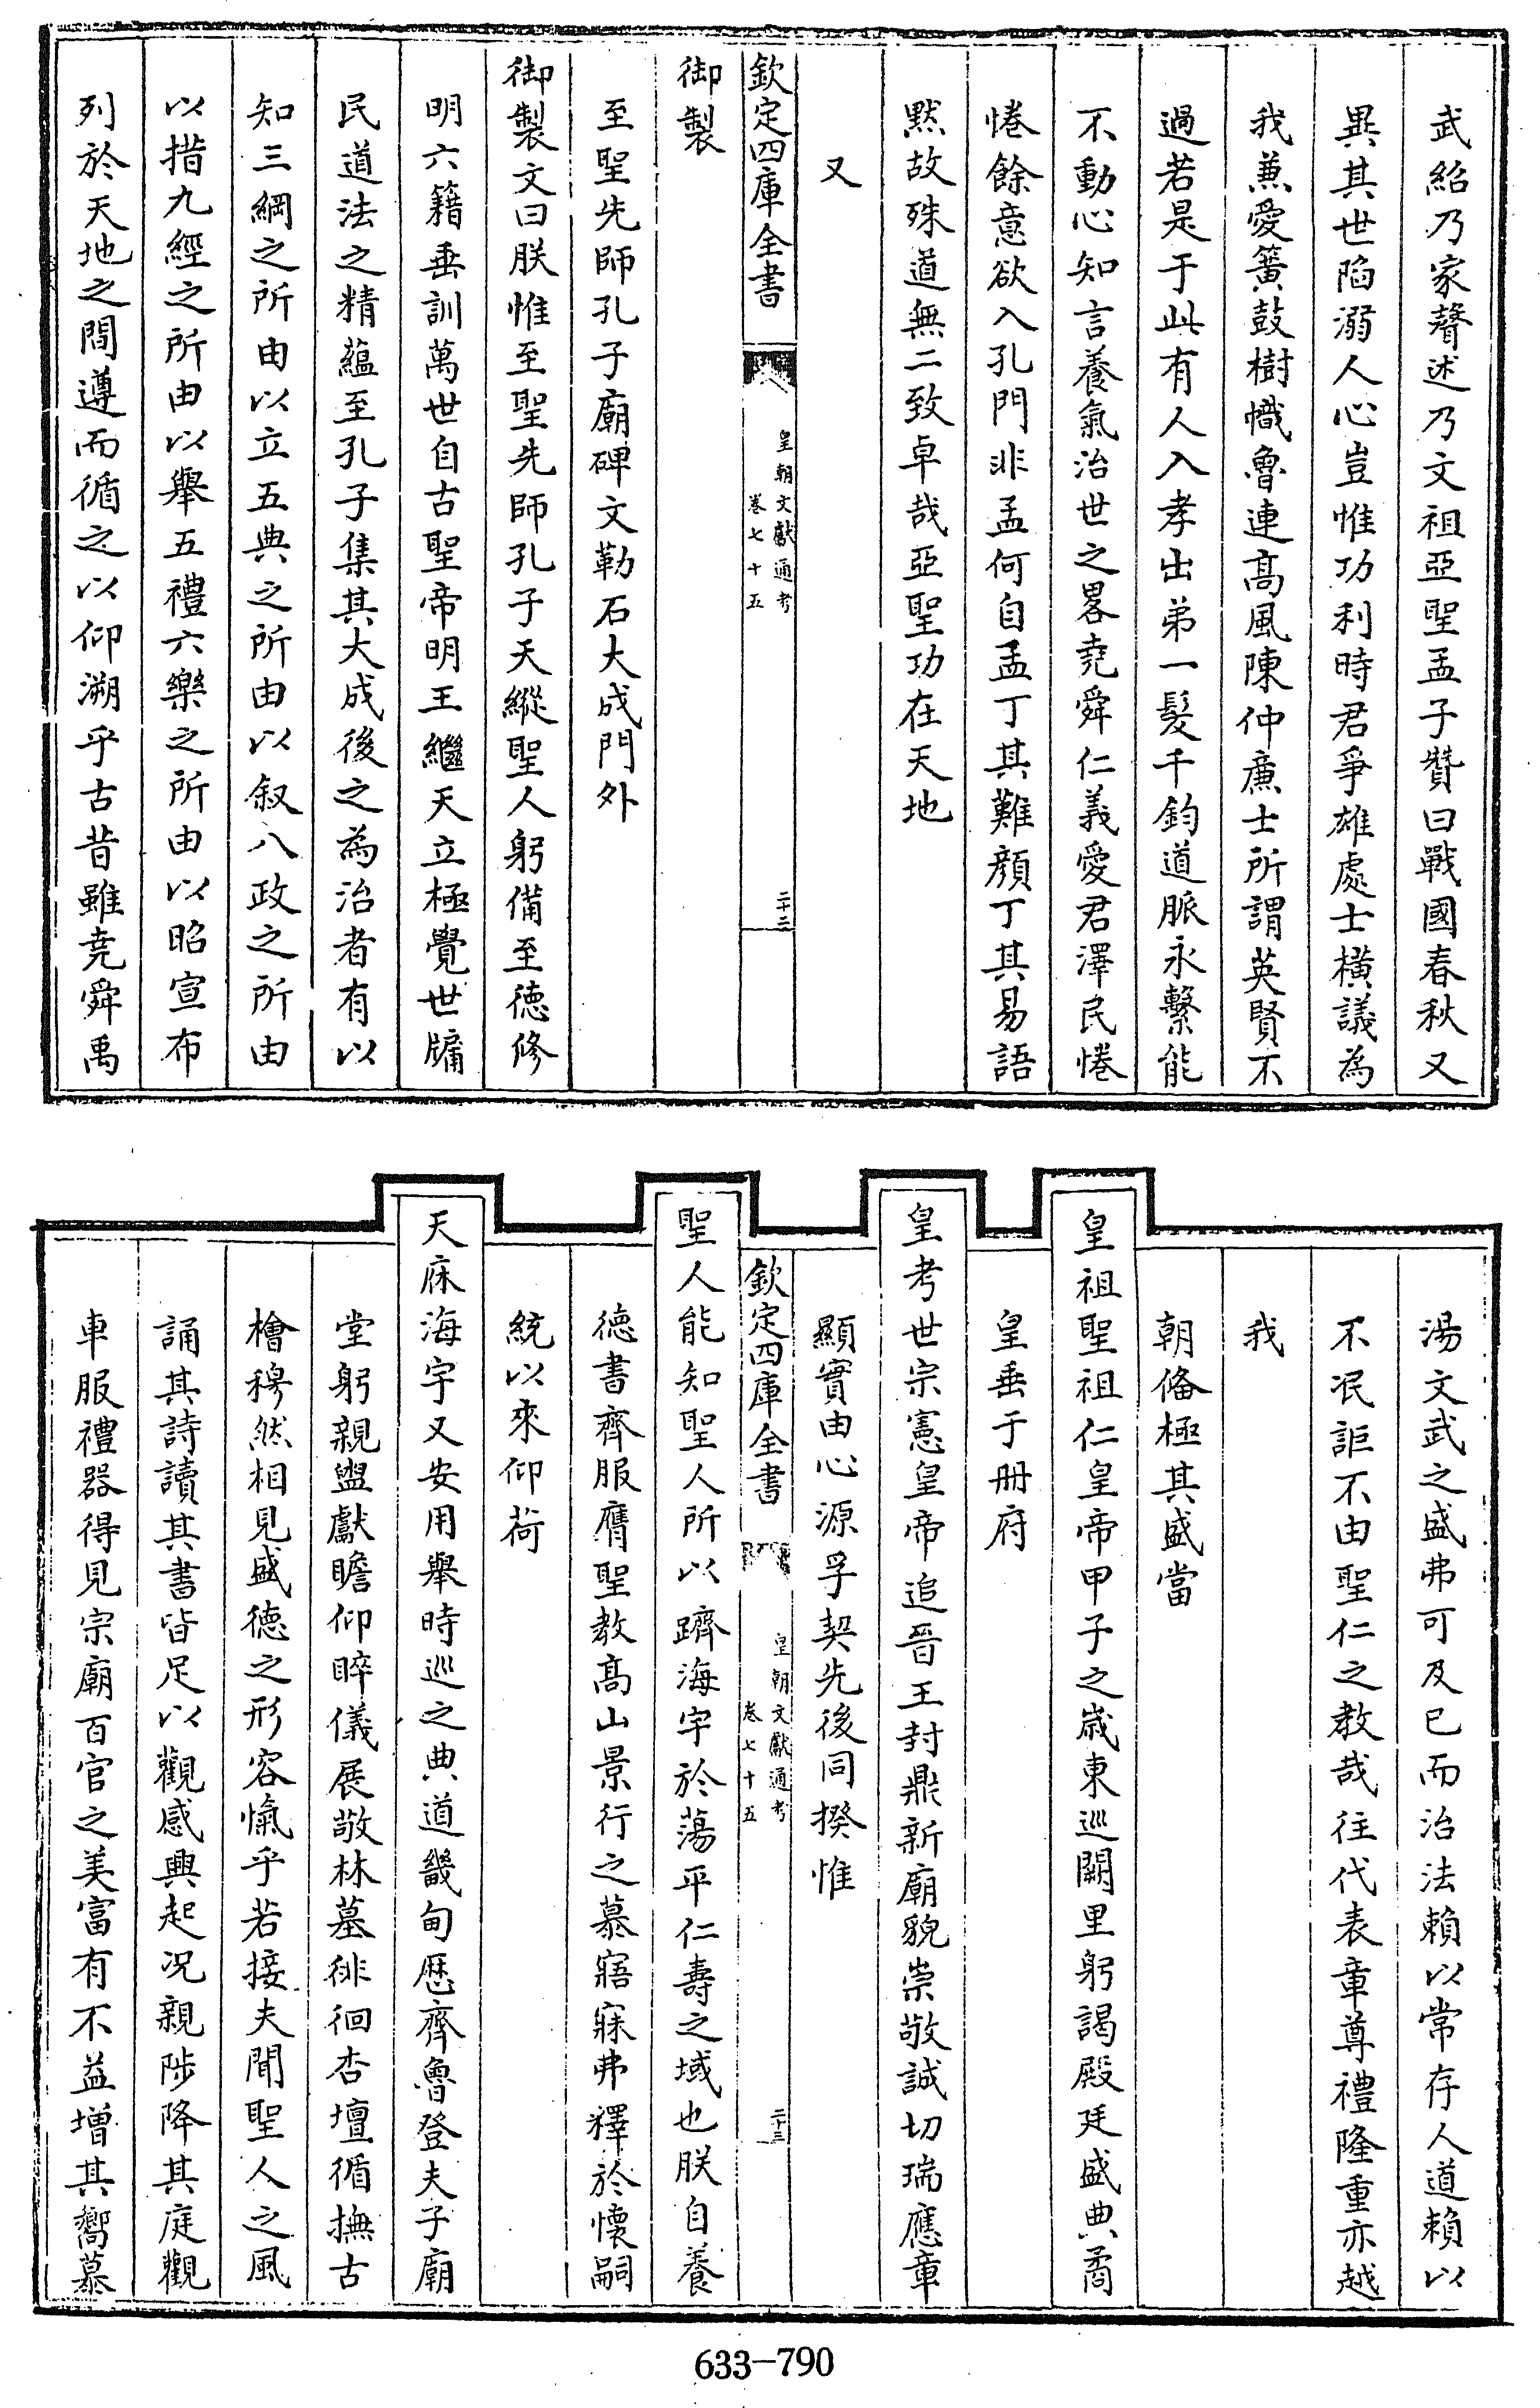 武紹乃家聲述乃文祖亞聖孟子贊曰戰國春秋又
異其世陷溺人心豈惟功利時君爭雄處士橫議為
我兼愛簧鼓樹幟魯連高風陳仲亷士所謂英賢不
過若是于此有人入孝出弟一髮千鈞道脈永繫能
不動心知言養氣治世之畧堯舜仁義愛君澤民惓
惓餘意欲入孔門非孟何自孟丁其難顔丁其易語
黙故殊道無二致卓哉亞聖功在天地
又
欽定四庫全書
皇朝文獻通考
卷七十五
二十二
御製
至聖先師孔子廟碑文勒石大成門外
御製文曰朕惟至聖先師孔子天縱聖人躬備至德修
明六籍垂訓萬世自古聖帝明王繼天立極覺世牖
民道法之精蘊至孔子集其大成後之為治者有以
知三綱之所由以立五典之所由以叙八政之所由
以措九經之所由以舉五禮六樂之所由以昭宣布
列於天地之間遵而循之以仰溯乎古昔雖堯舜禹
湯文武之盛弗可及已而治法賴以常存人道賴以
不泯詎不由聖仁之教哉往代表章尊禮隆重亦越
我
朝俻極其盛當
皇祖聖祖仁皇帝甲子之歳東巡闕里躬謁殿廷盛典矞
皇垂于冊府
皇考世宗憲皇帝追晉王封鼎新廟貌崇敬誠切瑞應章
顯實由心源孚契先後同揆惟
欽定四庫全書
皇朝文獻通考
卷七十五
二十三
聖人能知聖人所以躋海宇於蕩平仁壽之域也朕自養
德書齊服膺聖教髙山景行之慕寤寐弗釋於懷嗣
統以來仰荷
天庥海宇又安用舉時巡之典道畿甸歴齊魯登夫子廟
堂躬親盥獻瞻仰睟儀展敬林墓徘徊杏壇循撫古
檜穆然相見盛德之形容愾乎若接夫聞聖人之風
誦其詩讀其書皆足以觀感興起况親陟降其庭觀
車服禮器得見宗廟百官之美富有不益增其嚮慕
633-790